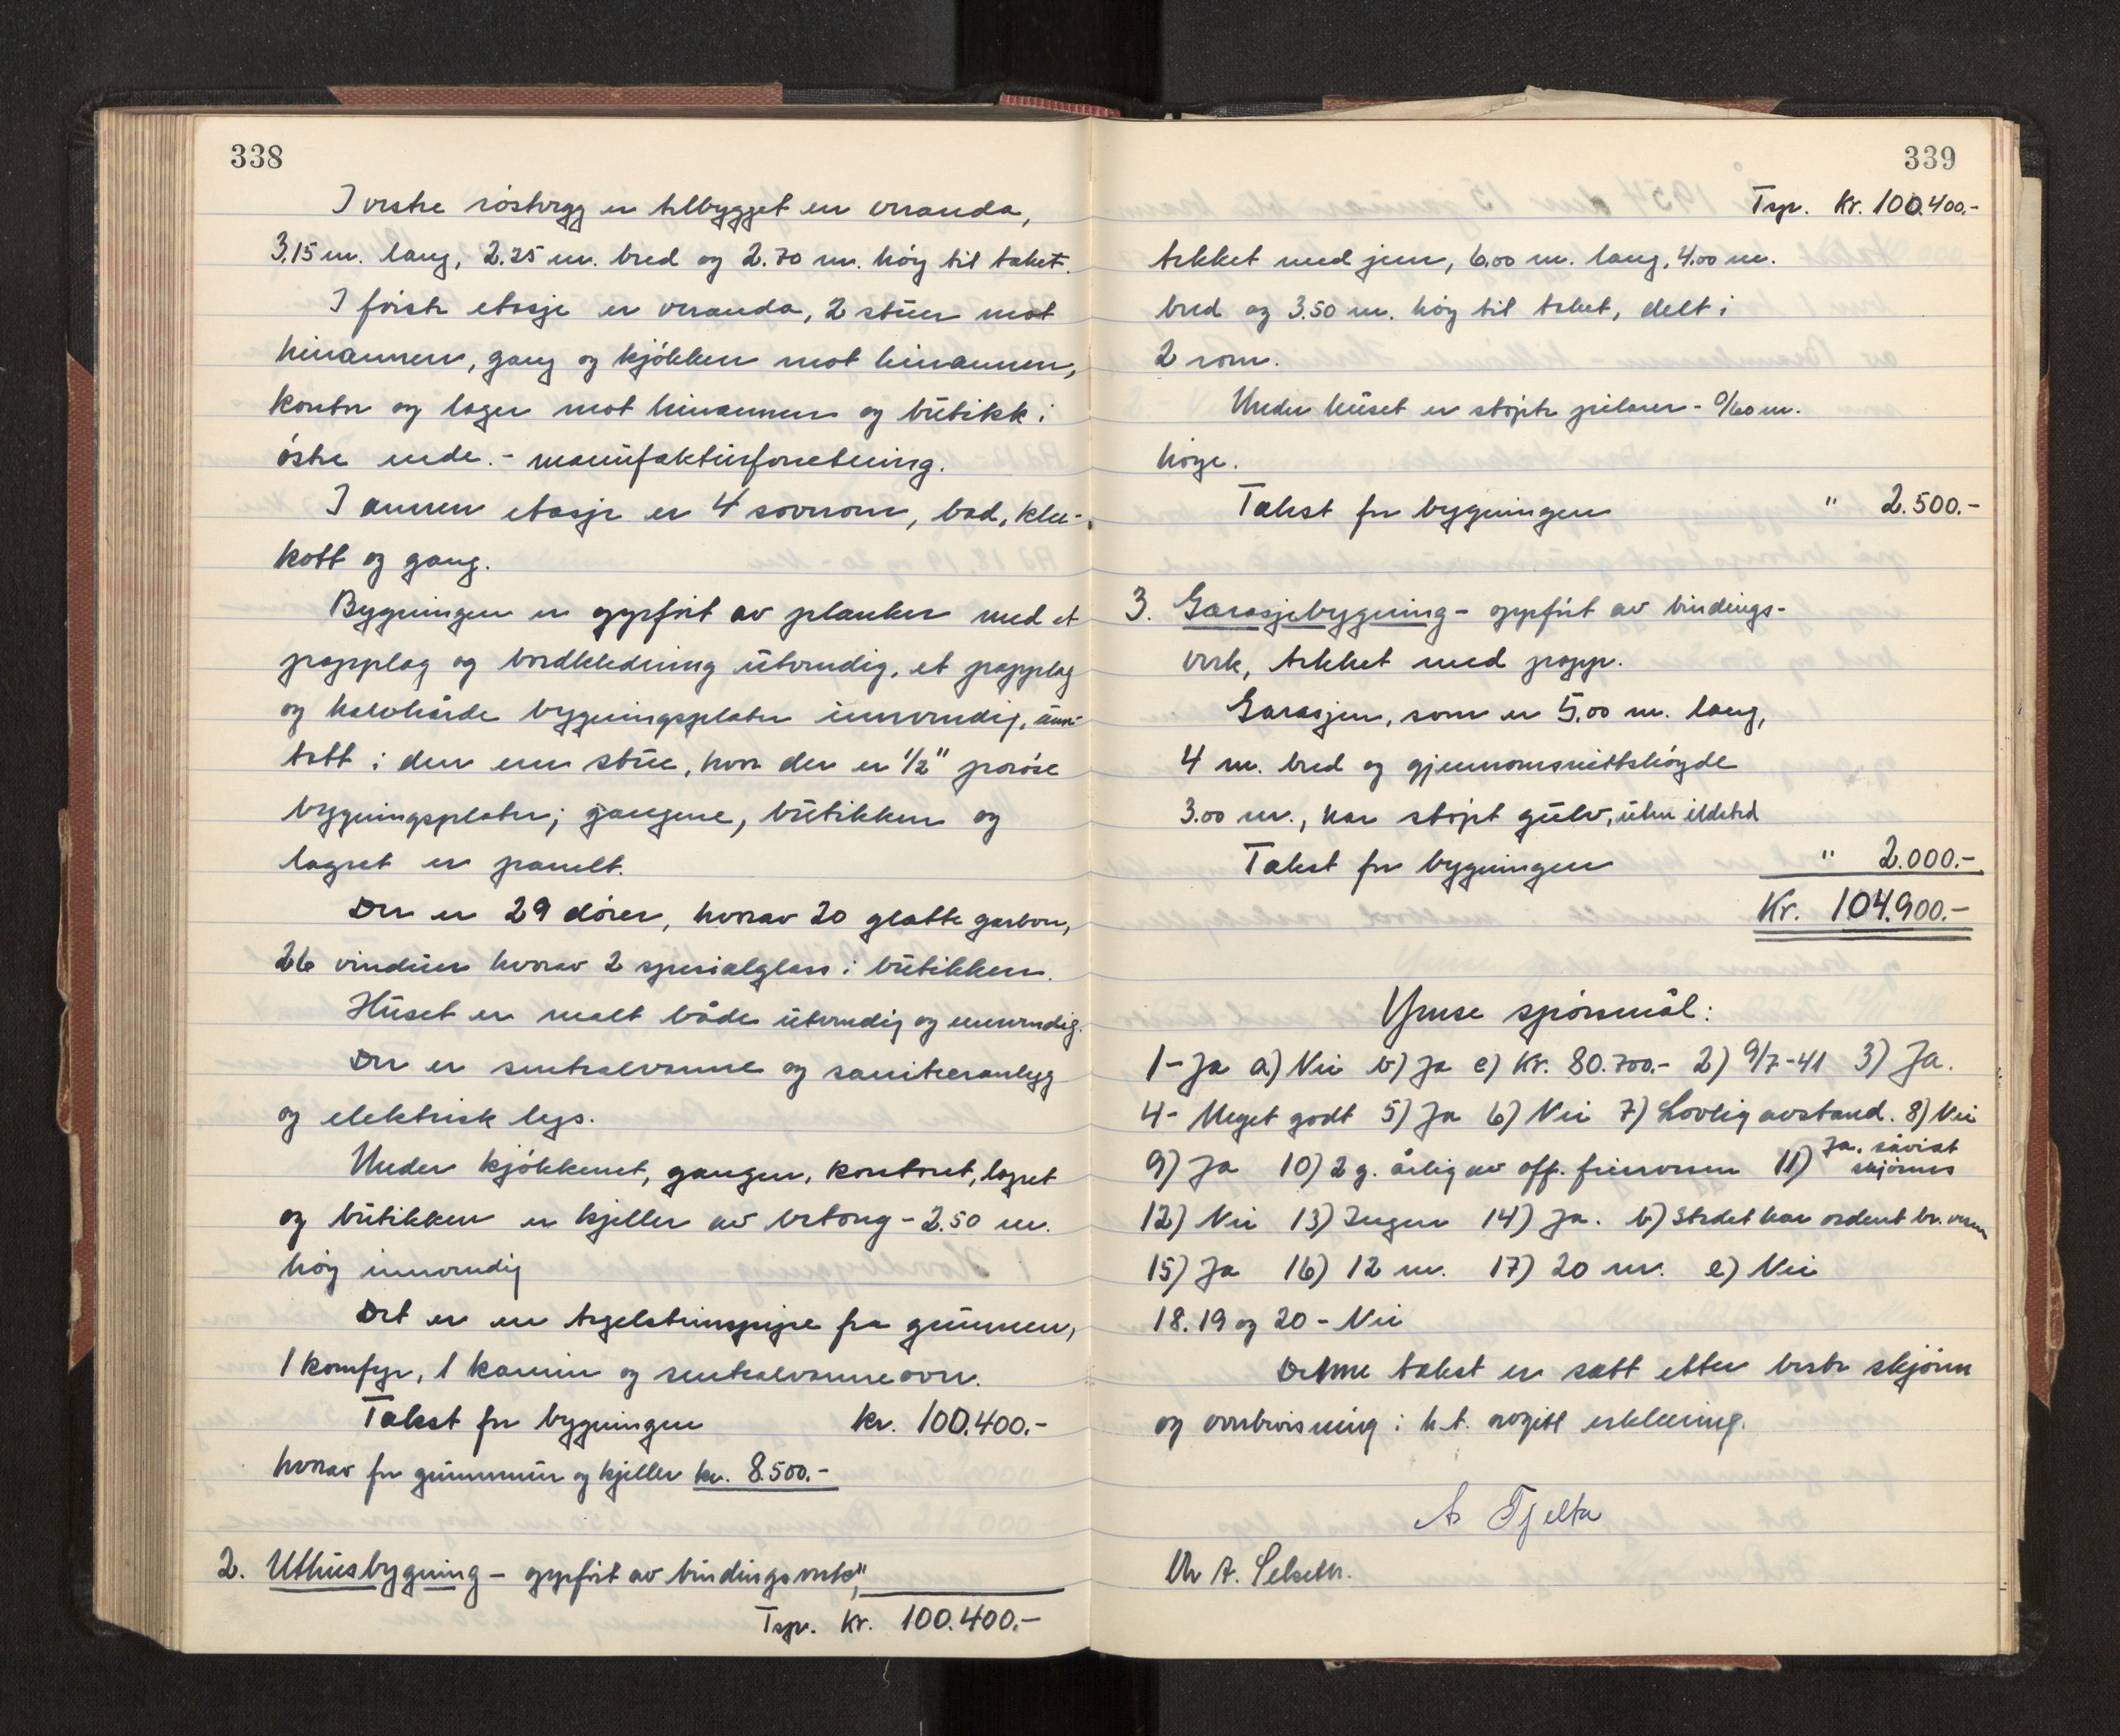 338
I vestre röstvegg er tilbygget en veranda,
3.15 m. lang, 2.25 m. bred og 2.70 m. höy til taket.
I förste etasje er veranda, 2 stuer mot
hinannen, gang og kjökken mot hinannen,
kontor og lager mot hinannen og butikk i
östre ende. - manufakturforretning.
I annen etasje er 4 soverom, bad, kle-
kott og gang.
Bygningen er oppfört av planker med et
papplag og bordkledning utvendig, et papplag
og halvhårde bygningsplater innvendig, unn-
tatt i den ene stue, hvor der er 1/2" poröse
bygningsplater; gangene, butikken og
lagret er panelt.
Der er 29 dörer, hvorav 20 glatte gabon,
26 vinduer hvorav 2 spesialglass i butikken.
Huset er malt både utvendig og innvendig.
Der er sentralvarme og sanitæranlegg
og elektrisk lys.
Under kjökkenet, gangen, kontoret, lagret
og butikken er kjeller av betong - 2.50 m.
höy innvendig
Det er en teglstenspipe fra grunnen,
1 komfyr, 1 kamin og sentralvarmeovn.
Takst for bygningen kr. 100.400.-
hvorav for grunnmur og kjeller kr. 8.500.-
2. Uthusbygning - oppfört av bindingsverk,
Tsp. Kr. 100.400.-
339
Tsp. Kr. 100.400.-
tekket med jern, 6.00 m. lang, 4.00 m.
bred og 3.50 m. höy til teket, delt i
2 rom.
Under huset er stöpte pilarer - 0/60 m.
höye.
Takst for bygningen " 2.500.-
3. Garasjebygning - oppfört av bindings-
verk, tekket med papp.
Garasjen, som er 5.00 m. lang,
4 m. bred og gjennomsnittshöyde
3.00 m., har stöpt gulv, uten ildsted
Takst for bygningen " 2.000.-
Kr. 104.900.-
Ymse spörsmål:
1- Ja a) Nei b) Ja c) Kr. 80.700.- 2) 9/7-41 3) Ja.
4- Meget godt 5) Ja 6) Nei 7) Lovlig avstand. 8) Nei
9) Ja 10) 2 g. årlig av off. feiervesen 11) Ja, såvidt skjönnes
12) Nei 13) Ingen 14) Ja. b) Stedet har ordent br. vern
15) Ja 16) 12 m. 17) 20 m. e) Nei
18. 19 og 20 - Nei
Denne takst er satt etter beste skjönn
og overbevisning i h.t. avgitt erklæring.
A Tjelta
Chr A. Selseth.